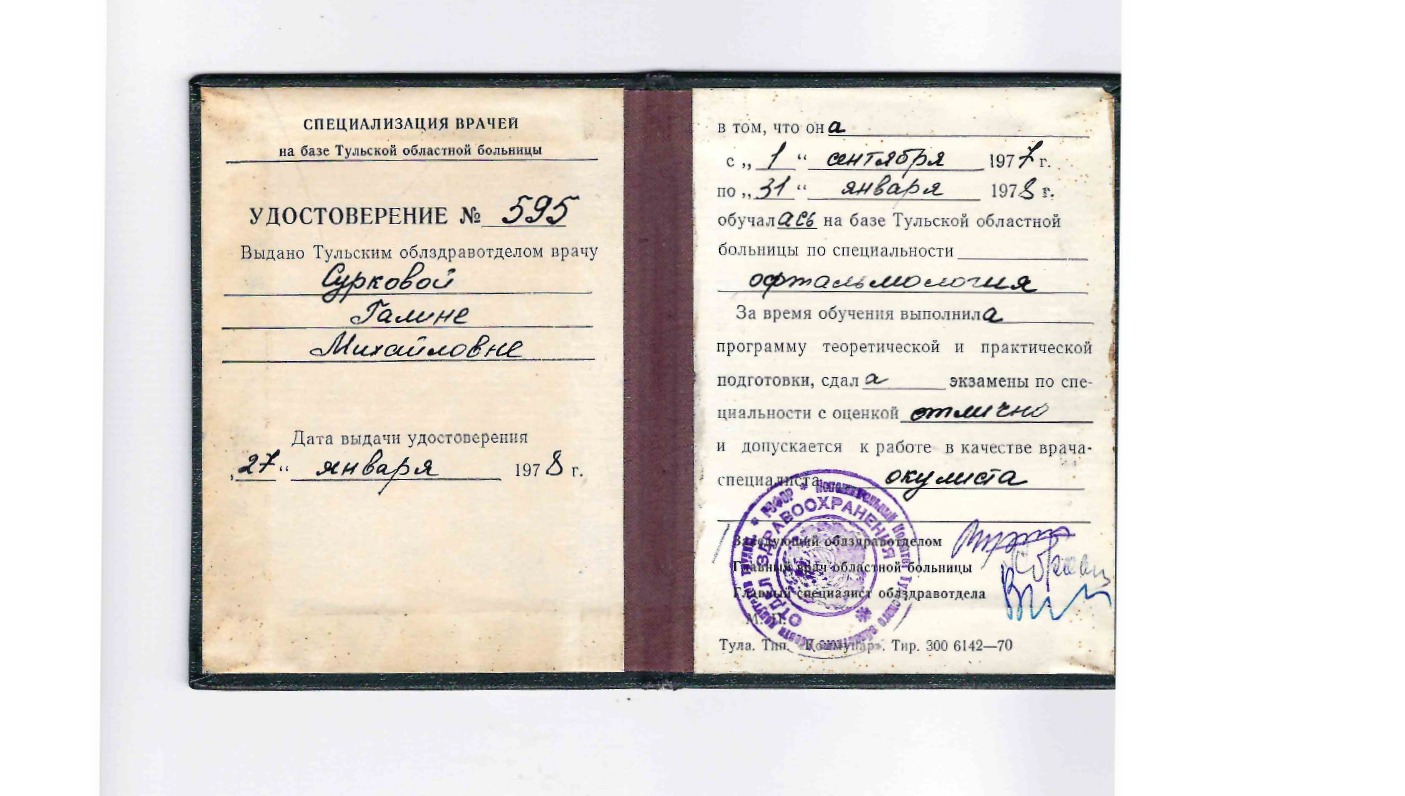 СПЕЦИАЛИЗАЦИЯ ВРАЧЕЙ
на базе Тульской областной больницы
УДОСТОВЕРЕНИЕ № 595
Выдано Тульским облздравотделом врачу
Сурковой
Галине
Михайловне
Дата выдачи удостоверения
„27“ января 1978 г.
в том, что она
с „1“ сентября 1977 г.
по „31“ января 1978 г.
обучалась на базе Тульской областной
больницы по специальности
офтальмология
За время обучения выполнила
программу теоретической и практической
подготовки, сдала экзамены по спе-
циальности с оценкой отлично
и допускается к работе в качестве врача-
специалиста окулиста
Заведующий облздравотделом
Главный врач областной больницы
Главный специалист облздравотдела
М. П.
Тула. Тип. «Коммунар». Тир. 300 6142—70
ОТДЕЛ ЗДРАВООХРАНЕНИЯ
РСФСР